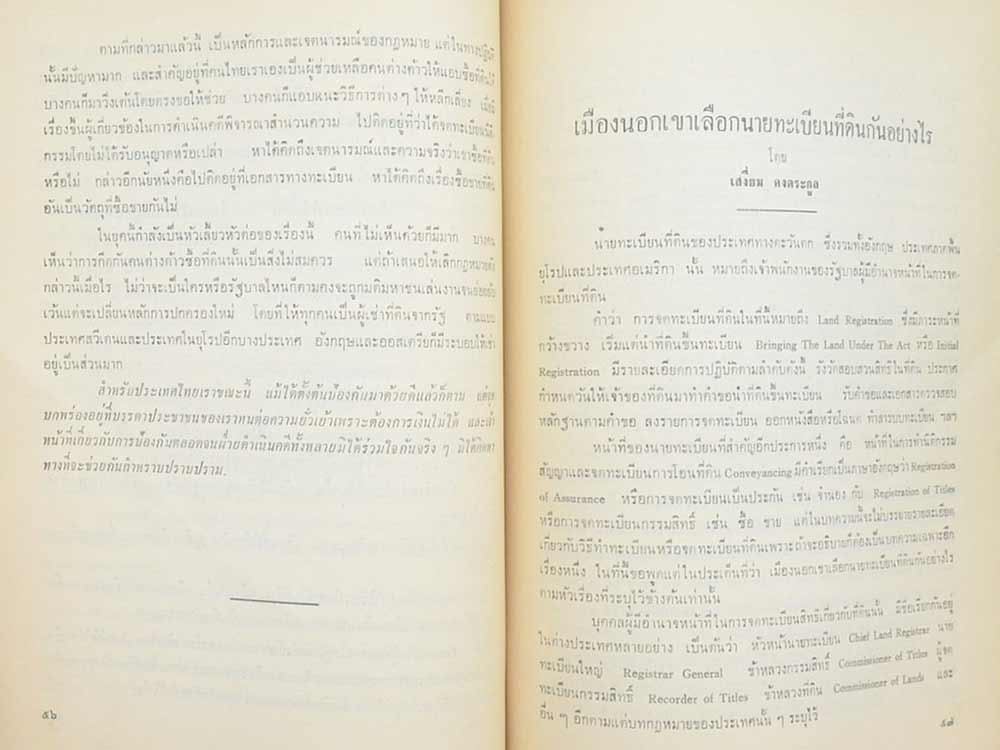 ตามที่กล่าวมาแล้วนี้ เป็นหลักการและเจตนารมณ์ของกฎหมาย แต่ในทางปฏิบัติ
นั้นมีปัญหามาก และสำคัญอยู่ที่คนไทยเราเองเป็นผู้ช่วยเหลือคนต่างด้าวให้แอบซื้อที่ดินได้
บางคนก็มาวิ่งเต้นโดยตรงขอให้ช่วย บางคนก็แอบแนะวิธีการต่าง ๆ ให้หลีกเลี่ยง เมื่อมี
เรื่องขึ้นผู้เกี่ยวข้องในการดำเนินคดีพิจารณาสำนวนความ ไปติดอยู่ที่ว่าได้จดทะเบียนนิติ
กรรมโดยไม่ได้รับอนุญาตหรือเปล่า หาได้คิดถึงเจตนารมณ์และความจริงว่าเขาซื้อที่ดิน
หรือไม่ กล่าวอีกนัยหนึ่งคือไปคิดอยู่ที่เอกสารทางทะเบียน หาได้คิดถึงเรื่องซื้อขายที่ดิน
อันเป็นวัตถุที่ซื้อขายกันไม่
ในยุคนี้กำลังเป็นหัวเลี้ยวหัวต่อของเรื่องนี้ คนที่ไม่เห็นด้วยก็มีมาก บางคน
เห็นว่าการกีดกันคนต่างด้าวซื้อที่ดินนั้นเป็นสิ่งไม่สมควร แต่ถ้าเสนอให้เลิกกฎหมายดัง
กล่าวนี้เมื่อไร ไม่ว่าจะเป็นใครหรือรัฐบาลไหนก็ตามคงจะถูกมติมหาชนเล่นงานจน
เว้นแต่จะเปลี่ยนหลักการปกครองใหม่ โดยที่ให้ทุกคนเป็นผู้เช่าที่ดินจากรัฐ ตามแบบ
ประเทศสวีเดนและประเทศในยุโรปอีกบางประเทศ อังกฤษและออสเตรียก็มีระบอบให้เช่า
อยู่เป็นส่วนมาก
สำหรับประเทศไทยเราขณะนี้ แม้ได้ตั้งต้นป้องกันมาด้วยดีแล้วก็ตาม แต่จุด
บกพร่องอยู่ที่บรรดาประชาชนของเราทนต่อความยั่วเย้าเพราะต้องการเงินไม่ได้ และเจ้า
หน้าที่เกี่ยวกับการป้องกันตลอดจนฝ่ายดำเนินคดีทั้งหลายมิได้ร่วมใจกันจริง ๆ มิได้คิดหา
ทางที่จะช่วยกันกำหราบปราบปราม.
๕๖
เมืองนอกเขาเลือกนายทะเบียนที่ดินกันอย่างไร
โดย
เสงี่ยม ดงตระกูล
นายทะเบียนที่ดินของประเทศทางตะวันตก ซึ่งรวมทั้งอังกฤษ ประเทศภาคพื้น
ยุโรปและประเทศอเมริกา นั้น หมายถึงเจ้าพนักงานของรัฐบาลผู้มีอำนาจหน้าที่ในการจด-
ทะเบียนที่ดิน
คำว่า การจดทะเบียนที่ดินในที่นี้หมายถึง Land Registration ซึ่งมีภาระหน้าที่
กว้างขวาง เริ่มแต่นำที่ดินขึ้นทะเบียน Bringing The Land Under The Act หรือ Initial
Registration มีรายละเอียดการปฏิบัติตามลำดับดังนี้ รังวัดสอบสวนสิทธิในที่ดิน ประกาศ
กำหนดวันให้เจ้าของที่ดินมาทำคำขอนำที่ดินขึ้นทะเบียน รับคำขอและเอกสารตรวจสอบ
หลักฐานตามคำขอ ลงรายการจดทะเบียน ออกหนังสือหรือโฉนด ทำสารบบทะเบียน ฯลฯ
หน้าที่ของนายทะเบียนที่สำคัญอีกประการหนึ่ง คือ หน้าที่ในการทำนิติกรรม
สัญญาและจดทะเบียนการโอนที่ดิน Conveyancing มีคำเรียกเป็นภาษาอังกฤษว่า Registration
of Assurance หรือการจดทะเบียนเป็นประกัน เช่น จำนอง กับ Registration of Titles
หรือการจดทะเบียนกรรมสิทธิ์ เช่น ซื้อ ขาย แต่ในบทความนี้จะไม่บรรยายรายละเอียด
เกี่ยวกับวิธีทำทะเบียนหรือจดทะเบียนที่ดินเพราะถ้าจะอธิบายก็ต้องเป็นบทความเฉพาะอีก
เรื่องหนึ่ง ในที่นี้ขอพูดแต่ในประเด็นที่ว่า เมืองนอกเขาเลือกนายทะเบียนที่ดินกันอย่างไร
ตามหัวเรื่องที่ระบุไว้ข้างต้นเท่านั้น
บุคคลผู้มีอำนาจหน้าที่ในการจดทะเบียนสิทธิเกี่ยวกับที่ดินนั้น มีชื่อเรียกกันอยู่
ในต่างประเทศหลายอย่าง เป็นต้นว่า หัวหน้านายทะเบียน Chief Land Registrar นาย
ทะเบียนใหญ่ Registrar General ข้าหลวงกรรมสิทธิ์ Commissioner of Titles ผู้จด
ทะเบียนกรรมสิทธิ์ Recorder of Titles ข้าหลวงที่ดิน Commissioner of Lands และ
อื่น ๆ อีกตามแต่บทกฎหมายของประเทศนั้น ๆ ระบุไว้
๕๗